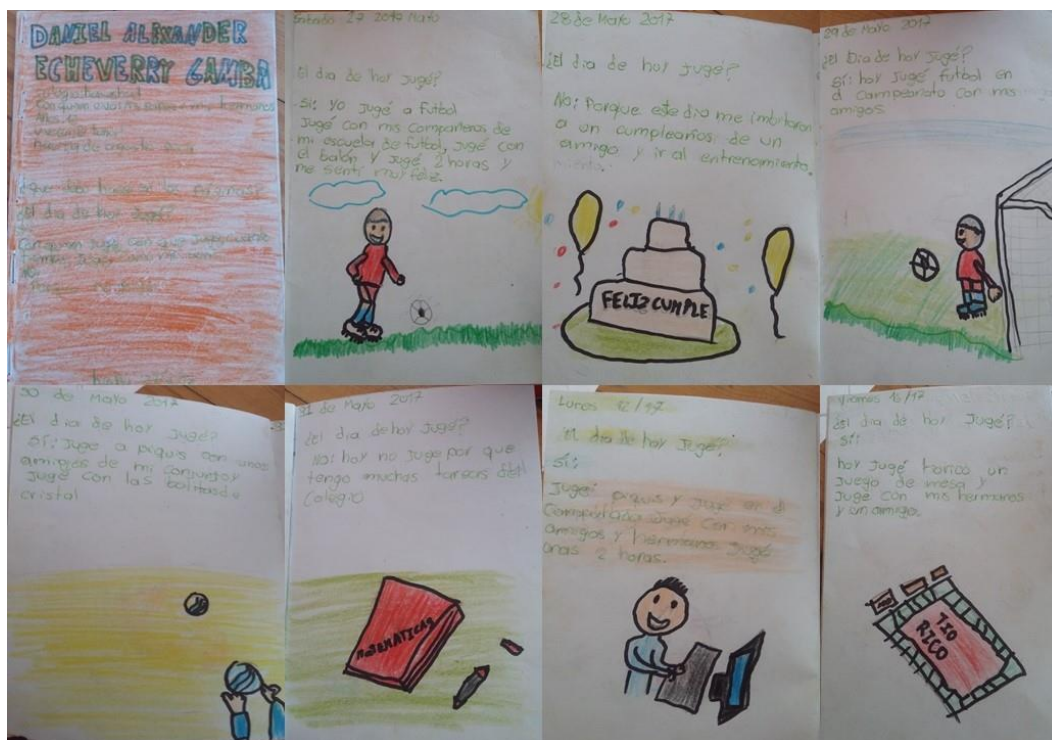 DANIEL ALEXANDER
ECHEVERRY GAMBA
hermanos
¿El dia de hoy Jugé?
Sabado 27 2017 Mayo
El dia de hoy Jugé?
Si: Yo Jugé a futbol
Jugé con mis compañeros de
mi escuela de futbol, Jugé con
el balón y Jugé 2 horas y
me senti muy feliz.
28 de Mayo 2017
¿El dia de hoy Jugé?
No: Porque este dia me imbitaron
a un cumpleaños de un
amigo y ir al entrenamiento.
FELIZ CUMPLE
29 de Mayo 2017
¿El Dia de hoy Jugé?
Sí: hoy Jugé futbol en
el campeonato con mis
amigos.
30 de Mayo 2017
¿El dia de hoy Jugé?
Sí: Juge a piquis con unos
amigos de mi conjunto y
Jugé con las bolitas de
cristal
31 de Mayo 2017
¿El dia de hoy Jugé?
No: hoy no Juge por que
tengo muchas tareas del
Colegio
MATEMATICAS
Lunes 12/17
¿El dia de hoy Jugé?
Sí:
Jugé: piquis y Jugé en el
Computador Jugé con mis
amigos y hermanos Jugé
unas 2 horas.
Viernes 16/17
¿El dia de hoy Jugé?
Sí:
hoy Jugé torico un
Juego de mesa y
Jugé con mis hermanos
y un amigo.
TIO
RICO